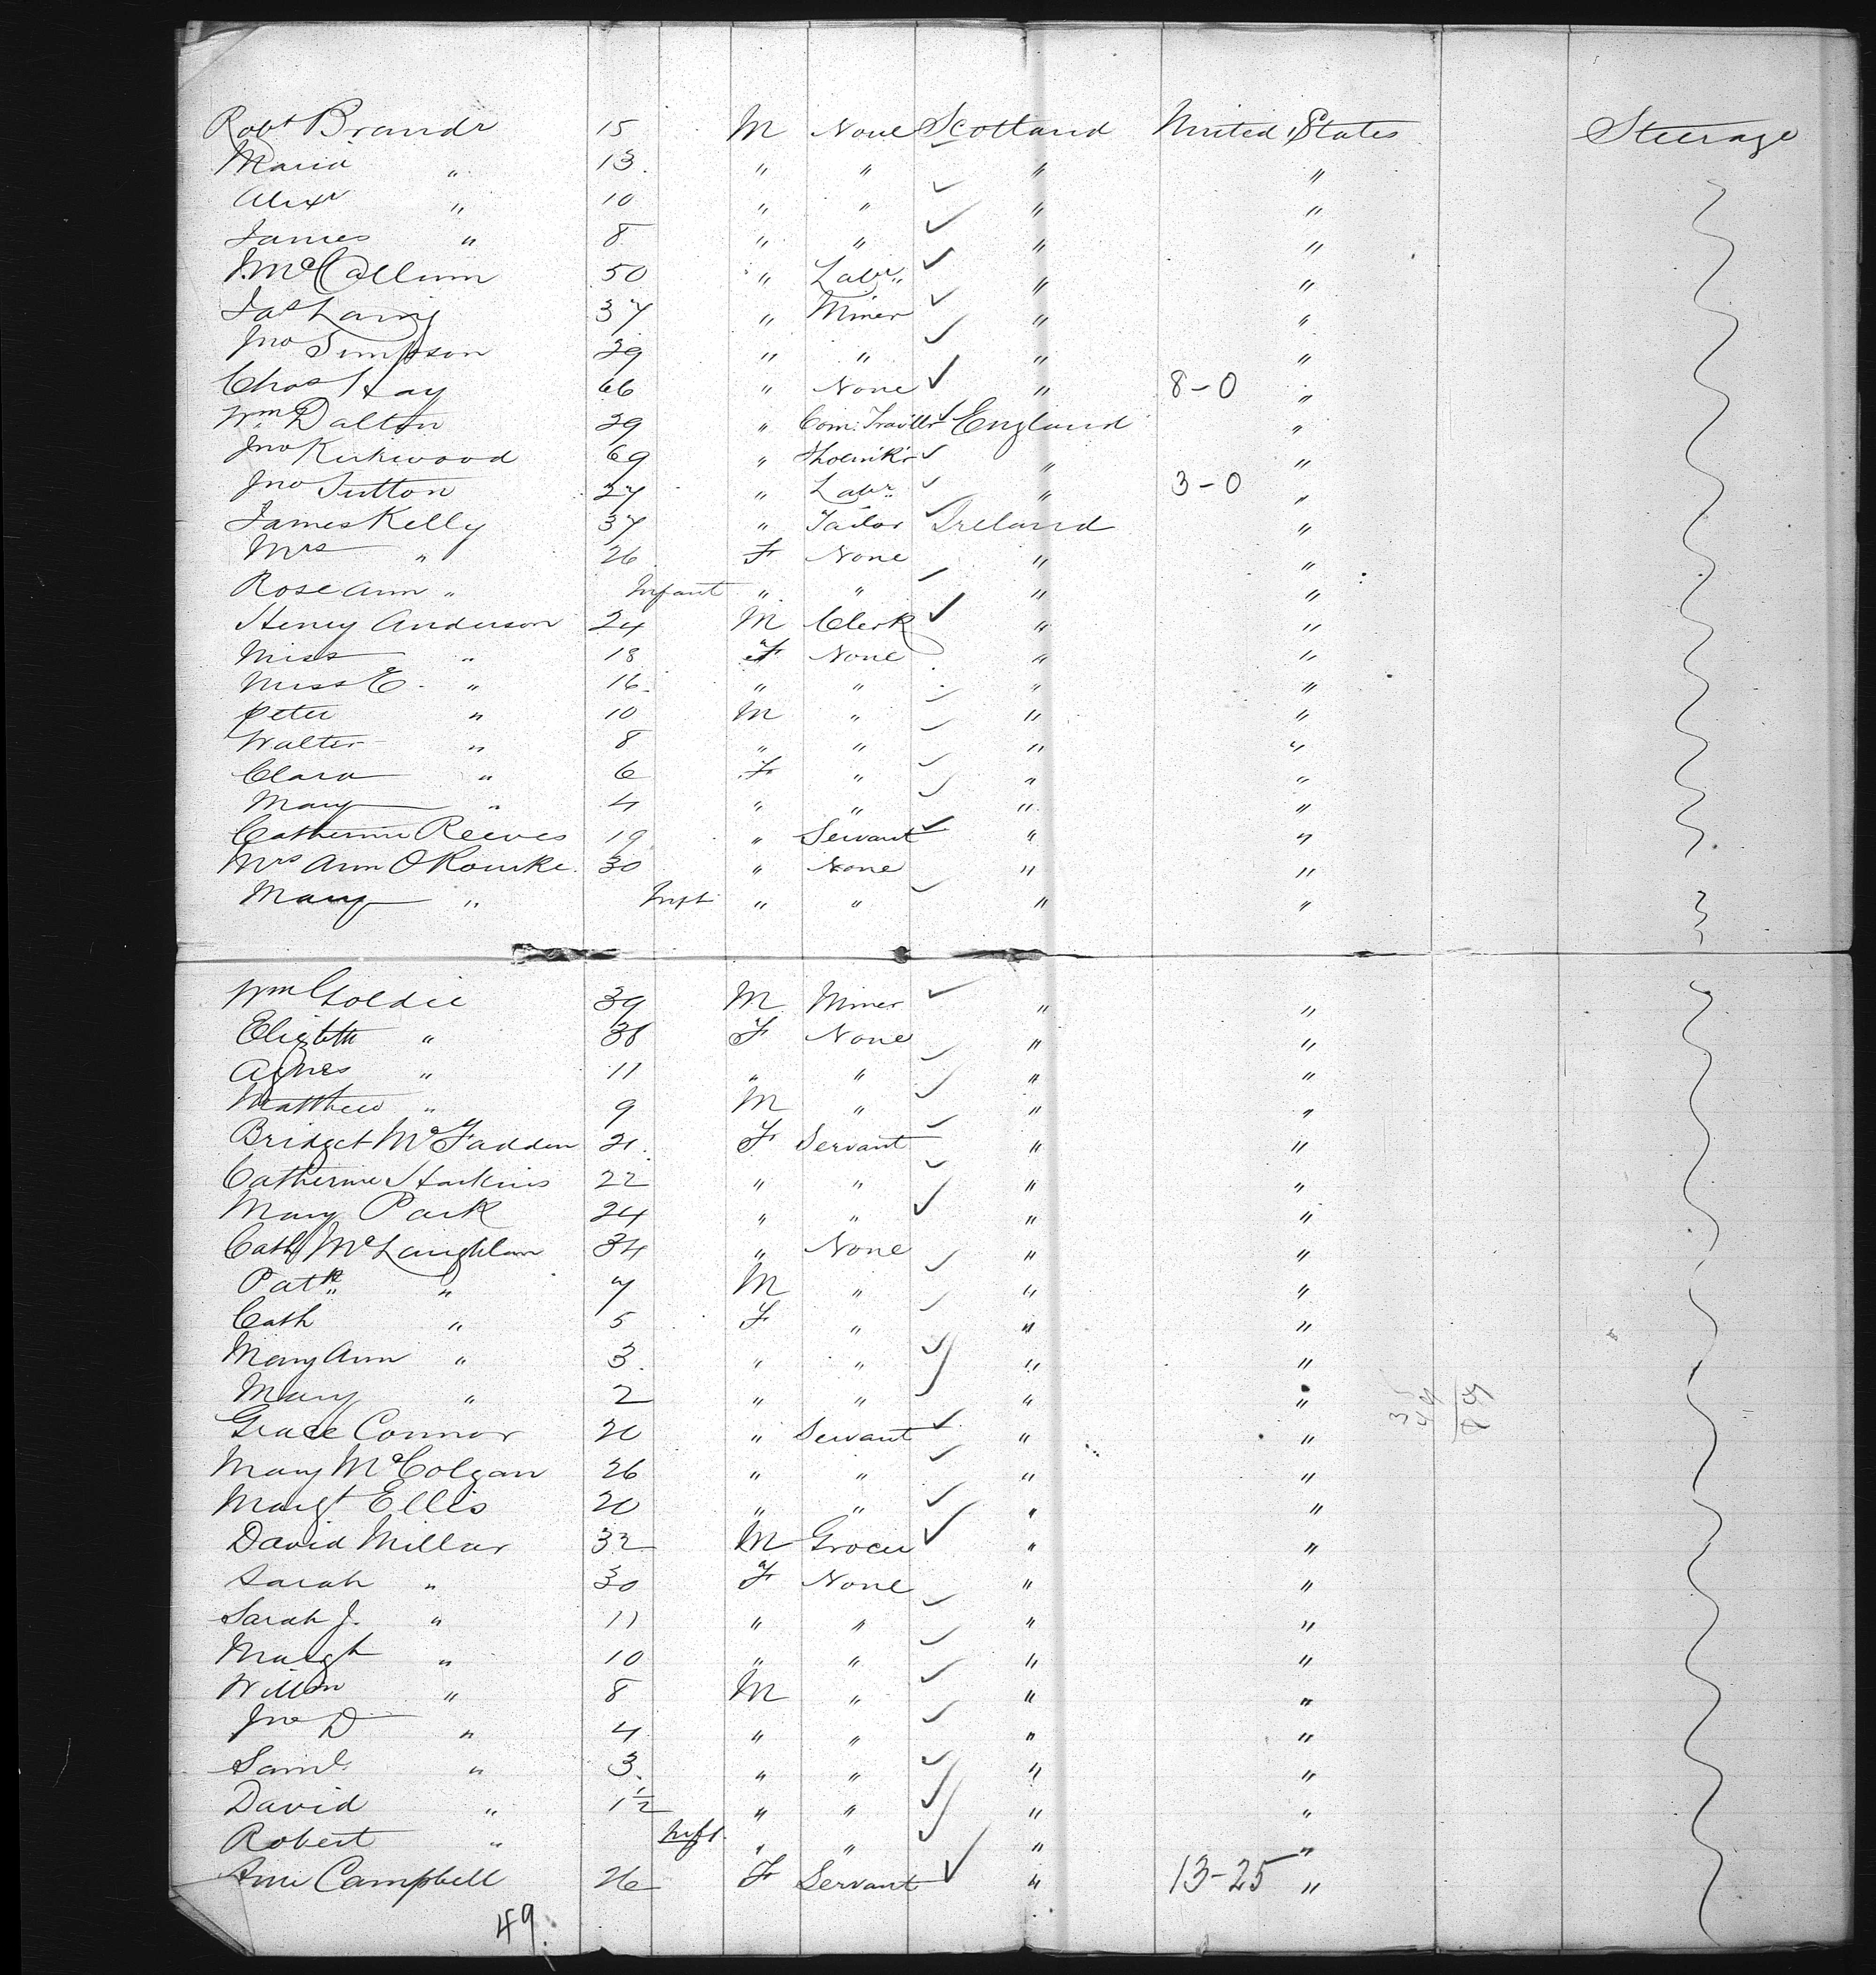 Robt Brandr 15 M None Scotland United States Steerage
Maria " 13 " " " "
Alexr " 10 " " " "
James " 8 " " " "
J. McCallum 50 " Labr " "
Jas Laing 37 " Miner " "
Jno Simpson 29 " " " "
Chas Hay 66 " None " 8-0 "
Wm Dalton 29 " Com: Traviller England "
Jno Kirkwood 69 " " "
Jno Sutton 27 " Labr " 3-0 "
James Kelly 37 " Tailor Ireland "
Mrs " 26 F None " "
Rose Ann " Infant " " " "
Henry Anderson 24 M Clerk " "
Miss " 18 F None " "
Miss E. " 16 " " " "
Peter " 10 M " " "
Walter " 8 " " " "
Clara " 6 F " " "
Mary " 4 " " " "
Catherine Reeves 19 " Servant " "
Mrs Ann O Rourke 30 " None " "
Mary " Inft " " " "
Wm Goldie 39 M Miner " "
Elizbth " 38 F None " "
Agnes " 11 " " " "
Matthew " 9 M " " "
Bridget McFadden 21 F Servant " "
Catherine Harkins 22 " " " "
Mary Park 24 " " " "
Cath McLaughlan 34 " None " "
Patk " 7 M " " "
Cath " 5 F " " "
Mary Ann " 3 " " " "
Mary " 2 " " " "
Grace Connor 20 " Servant " "
Mary McColgan 26 " " " "
Margt Ellis 20 " " " "
David Millar 32 M Grocer " "
Sarah " 30 F None " "
Sarah J. " 11 " " " "
Margt " 10 " " " "
Willm " 8 M " " "
Jno D " 4 " " " "
Saml " 3 " " " "
David " 1½ " " " "
Robert " Inft " " " "
Ann Campbell 26 F Servant " 13-25 "
49